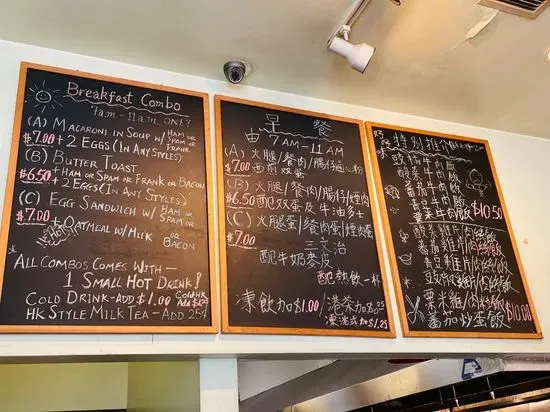 Breakfast Combo
7am-11am ONLY
(A) MACARONI IN SOUP W/ HAM OR SPAM OR FRANK
$7.00 + 2 EGGS (IN ANY STYLES)
(B) BUTTER TOAST
$6.50 + HAM OR SPAM OR FRANK OR BACON
+ 2 EGGS (IN ANY STYLES)
(C) EGG SANDWICH W/ HAM OR SPAM OR BACON
$7.00
+ OATMEAL W/ MILK
ALL COMBOS COMES WITH -
1 SMALL HOT DRINK!
COLD DRINK - ADD $1.00
HK STYLE MILK TEA - ADD 25¢
早餐
由 7AM-11AM
(A) 火腿/餐肉/腸仔通心粉
$7.00 西煎双蛋
(B) 火腿/餐肉/腸仔/煙肉
$6.50 配双蛋及牛油多士
(C) 火腿蛋/餐肉蛋/煙肉蛋
$7.00 三文治
配牛奶麥皮
配熱飲一杯
凍飲加$1.00/港茶加$0.25
凍港式加$1.25
特別推介
牛肉飯
番茄牛肉飯
粟米牛肉飯 $10.50
粟米雞/肉粉飯
番茄炒蛋飯 $10.00